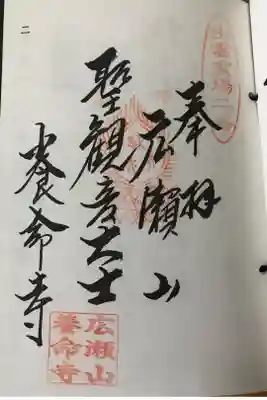 奉拝
広瀬山
聖観音大士
養命寺
広瀬山
養命寺
二